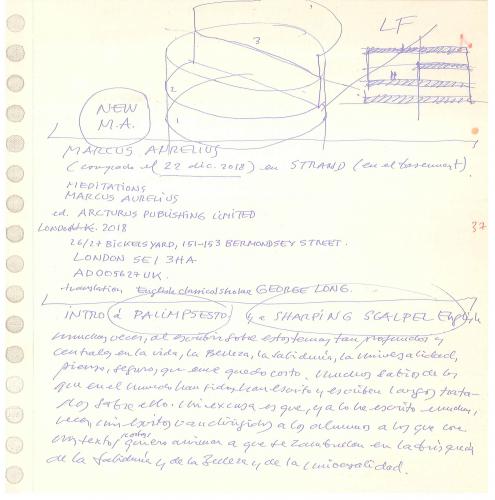 LF
3
2
1
NEW
M.A.
MARCUS AURELIUS
(comprado el 22 dic. 2018) en STRAND (en el basement).
MEDITATIONS
MARCUS AURELIUS
ed. ARCTURUS PUBLISHING LIMITED
London U.K. 2018
37
26/27 BICKELS YARD, 151-153 BERMONDSEY STREET.
LONDON SE1 3HA
AD005627UK.
translation English classical scholar GEORGE LONG.
INTRO a PALIMPSESTO y a SHARPING SCALPEL English
muchas veces, al escribir sobre estos temas tan profundos y
centrales en la vida, la Belleza, la Sabiduría, la Universalidad,
pienso, seguro, que me quedo corto. Muchos sabios de los
que en el mundo han sido, han escrito y escriben largos trata-
dos sobre ello. Mi excusa es que, ya lo he escrito muchas
veces, mis escritos van dirigidos a los alumnos a los que con
mis textos cortos quiero animar a que se zambullan en la búsqueda
de la Sabiduría y de la Belleza y de la Universalidad.